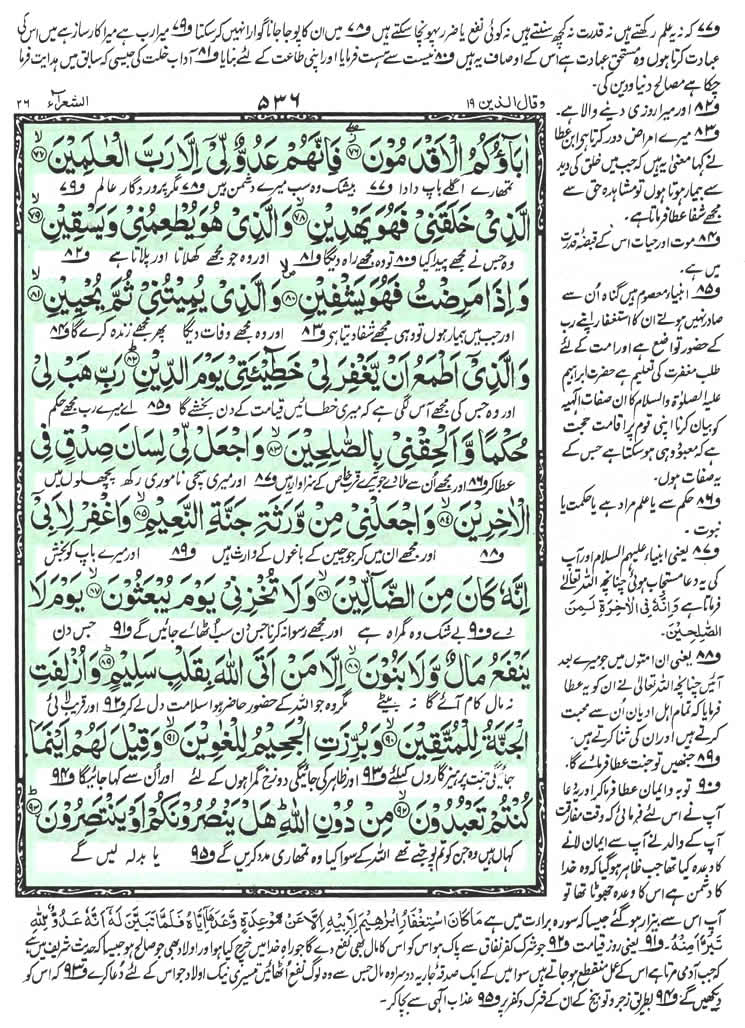 و۷۷ کہ نہ یہ علم رکھتے ہیں نہ قدرت نہ کچھ سنتے ہیں نہ کوئی نفع یا ضرر پہونچا سکتے ہیں و۷۸ میں ان کا پوجا جانا گوارا نہیں کرسکتا و۷۹ میرا رب ہے میرا کارساز ہے میں اس کی
عبادت کرتا ہوں وہ مستحق عبادت ہے اس کے اوصاف یہ ہیں و۸۰ نیست سے ہست فرمایا اور اپنی طاعت کے لئے بنایا و۸۱ آداب خلت کی جیسی کہ سابق میں ہدایت فرما
چکا ہے مصالح دنیا و دین کی۔
وقال الذین ۱۹
۵۳۶
الشعرآء ۲۶
اٰبَآؤُكُمُ الْاَقْدَمُوْنَ ﴿۷۶﴾ فَاِنَّهُمْ عَدُوٌّ لِّیْۤ اِلَّا رَبَّ الْعٰلَمِیْنَ ﴿۷۷﴾
تمھارے اگلے باپ دادا و۷۷ بیشک وہ سب میرے دشمن ہیں و۷۸ مگر پروردگار عالم و۷۹
الَّذِیْ خَلَقَنِیْ فَهُوَ یَهْدِیْنِ ﴿۷۸﴾ وَالَّذِیْ هُوَ یُطْعِمُنِیْ وَیَسْقِیْنِ ﴿۷۹﴾
وہ جس نے مجھے پیدا کیا و۸۰ تو وہ مجھے راہ دیگا و۸۱ اور وہ جو مجھے کھلاتا اور پلاتا ہے و۸۲
وَاِذَا مَرِضْتُ فَهُوَ یَشْفِیْنِ ﴿۸۰﴾ وَالَّذِیْ یُمِیْتُنِیْ ثُمَّ یُحْیِیْنِ ﴿۸۱﴾
اور جب میں بیمار ہوں تو وہی مجھے شفا دیتا ہے و۸۳ اور وہ مجھے وفات دیگا پھر مجھے زندہ کرے گا و۸۴
وَالَّذِیْۤ اَطْمَعُ اَنْ یَّغْفِرَ لِیْ خَطِیْٓـَٔتِیْ یَوْمَ الدِّیْنِ ﴿۸۲﴾ رَبِّ هَبْ لِیْ
اور وہ جس کی مجھے آس لگی ہے کہ میری خطائیں قیامت کے دن بخشے گا و۸۵ اے میرے رب مجھے حکم
حُكْمًا وَّاَلْحِقْنِیْ بِالصّٰلِحِیْنَ ﴿۸۳﴾ وَاجْعَلْ لِّیْ لِسَانَ صِدْقٍ فِی
عطا کر و۸۶ اور مجھے اُن سے ملادے جو تیرے قرب خاص کے سزاوار ہیں و۸۷ اور میری سچی ناموری رکھ پچھلوں میں
الْاٰخِرِیْنَ ﴿۸۴﴾ وَاجْعَلْنِیْ مِنْ وَّرَثَةِ جَنَّةِ النَّعِیْمِ ﴿۸۵﴾ وَاغْفِرْ لِاَبِیْۤ
و۸۸ اور مجھے ان میں کر جو چین کے باغوں کے وارث ہیں و۸۹ اور میرے باپ کو بخش
اِنَّهٗ كَانَ مِنَ الضَّآلِّیْنَ ﴿۸۶﴾ وَلَا تُخْزِنِیْ یَوْمَ یُبْعَثُوْنَ ﴿۸۷﴾ یَوْمَ لَا
دے و۹۰ بے شک وہ گمراہ ہے اور مجھے رسوا نہ کرنا جس دن سب اُٹھائے جائیں گے و۹۱ جس دن
یَنْفَعُ مَالٌ وَّلَا بَنُوْنَ ﴿۸۸﴾ اِلَّا مَنْ اَتَی اللّٰهَ بِقَلْبٍ سَلِیْمٍ ﴿۸۹﴾ وَاُزْلِفَتِ
نہ مال کام آئے گا نہ بیٹے مگر وہ جو اللہ کے حضور حاضر ہوا سلامت دل لے کر و۹۲ اور قریب لائی
الْجَنَّةُ لِلْمُتَّقِیْنَ ﴿۹۰﴾ وَبُرِّزَتِ الْجَحِیْمُ لِلْغٰوِیْنَ ﴿۹۱﴾ وَقِیْلَ لَهُمْ اَیْنَمَا
جائے گی جنت پرہیزگاروں کیلئے و۹۳ اور ظاہر کی جائیگی دوزخ گمراہوں کے لئے اور اُن سے کہا جائیگا و۹۴
كُنْتُمْ تَعْبُدُوْنَ ﴿۹۲﴾ مِنْ دُوْنِ اللّٰهِ هَلْ یَنْصُرُوْنَكُمْ اَوْ یَنْتَصِرُوْنَ ﴿۹۳﴾
کہاں ہیں وہ جن کو تم پوجتے تھے اللہ کے سوا کیا وہ تمھاری مدد کریں گے و۹۵ یا بدلہ لیں گے
و۸۲ اور میرا روزی دینے والا ہے۔
و۸۳ میرے امراض دور کرتا ہے ابن عطا
نے کہا معنٰی یہ ہیں کہ جب میں خلق کی دید
سے بیمار ہوتا ہوں تو مشاہدہ حق سے
مجھے شفا عطا فرماتا ہے۔
و۸۴ موت اور حیات اس کے قبضہ قدرت
میں ہے۔
و۸۵ انبیاء معصوم ہیں گناہ اُن سے
صادر نہیں ہوتے ان کا استغفار اپنے رب
کے حضور تواضع ہے اور امت کے لئے
طلب مغفرت کی تعلیم ہے حضرت ابراہیم
علیہ الصلوٰۃ والسلام کا ان صفات الٰہیہ
کو بیان کرنا اپنی قوم پر اقامت حجت
ہے کہ معبود وہی ہوسکتا ہے جس کے
یہ صفات ہوں۔
و۸۶ حکم سے یا علم مراد ہے یا حکمت یا
نبوت۔
و۸۷ یعنی انبیاء علیہم السلام اور آپ
کی یہ دعا مستجاب ہوئی چنانچہ اللہ تعالٰی
فرماتا ہے وَاِنَّهٗ فِی الْاٰخِرَةِ لَمِنَ
الصّٰلِحِیْنَ۔
و۸۸ یعنی ان امتوں میں جو میرے بعد
آئیں چنانچہ اللہ تعالٰی نے ان کو یہ عطا
فرمایا کہ تمام اہل ادیان اُن سے محبت
کرتے ہیں اور ان کی ثنا کرتے ہیں۔
و۸۹ جنھیں تو جنت عطا فرمائے گا۔
و۹۰ توبہ و ایمان عطا فرما کر اور دعا
آپ نے اس لئے فرمائی کہ وقت مفارقت
آپ کے والد نے آپ سے ایمان لانے
کا وعدہ کیا تھا جب ظاہر ہوگیا کہ وہ خدا
کا دشمن ہے اس کا وعدہ جھوٹا تھا تو
آپ اس سے بیزار ہوگئے جیسا کہ سورہ برارت میں ہے مَا كَانَ اسْتِغْفَارُ اِبْرٰهِیْمَ لِاَبِیْهِ اِلَّا عَنْ مَّوْعِدَةٍ وَّعَدَهَاۤ اِیَّاهُ فَلَمَّا تَبَیَّنَ لَهٗۤ اَنَّهٗ عَدُوٌّ لِّلّٰهِ
تَبَرَّاَ مِنْهُ۔ و۹۱ یعنی روز قیامت و۹۲ جو شرک کفر نفاق سے پاک ہو اس کو اس کا مال بھی نفع دے گا جو راہ خدا میں خرچ کیا ہو اور اولاد بھی جو صالح ہو جیسا کہ حدیث شریف میں ہے
کہ جب آدمی مرتا ہے اس کے عمل منقطع ہوجاتے ہیں سوا تین کے ایک صدقہ جاریہ دوسرا وہ مال جس سے وہ لوگ نفع اُٹھائیں تیسری نیک اولاد جو اس کے لئے دعا کرے و۹۳ کہ اس کو
دیکھیں گے و۹۴ بطریق زجر و توبیخ کے ان کے شرک و کفر پر و۹۵ عذاب الٰہی سے بچا کر۔